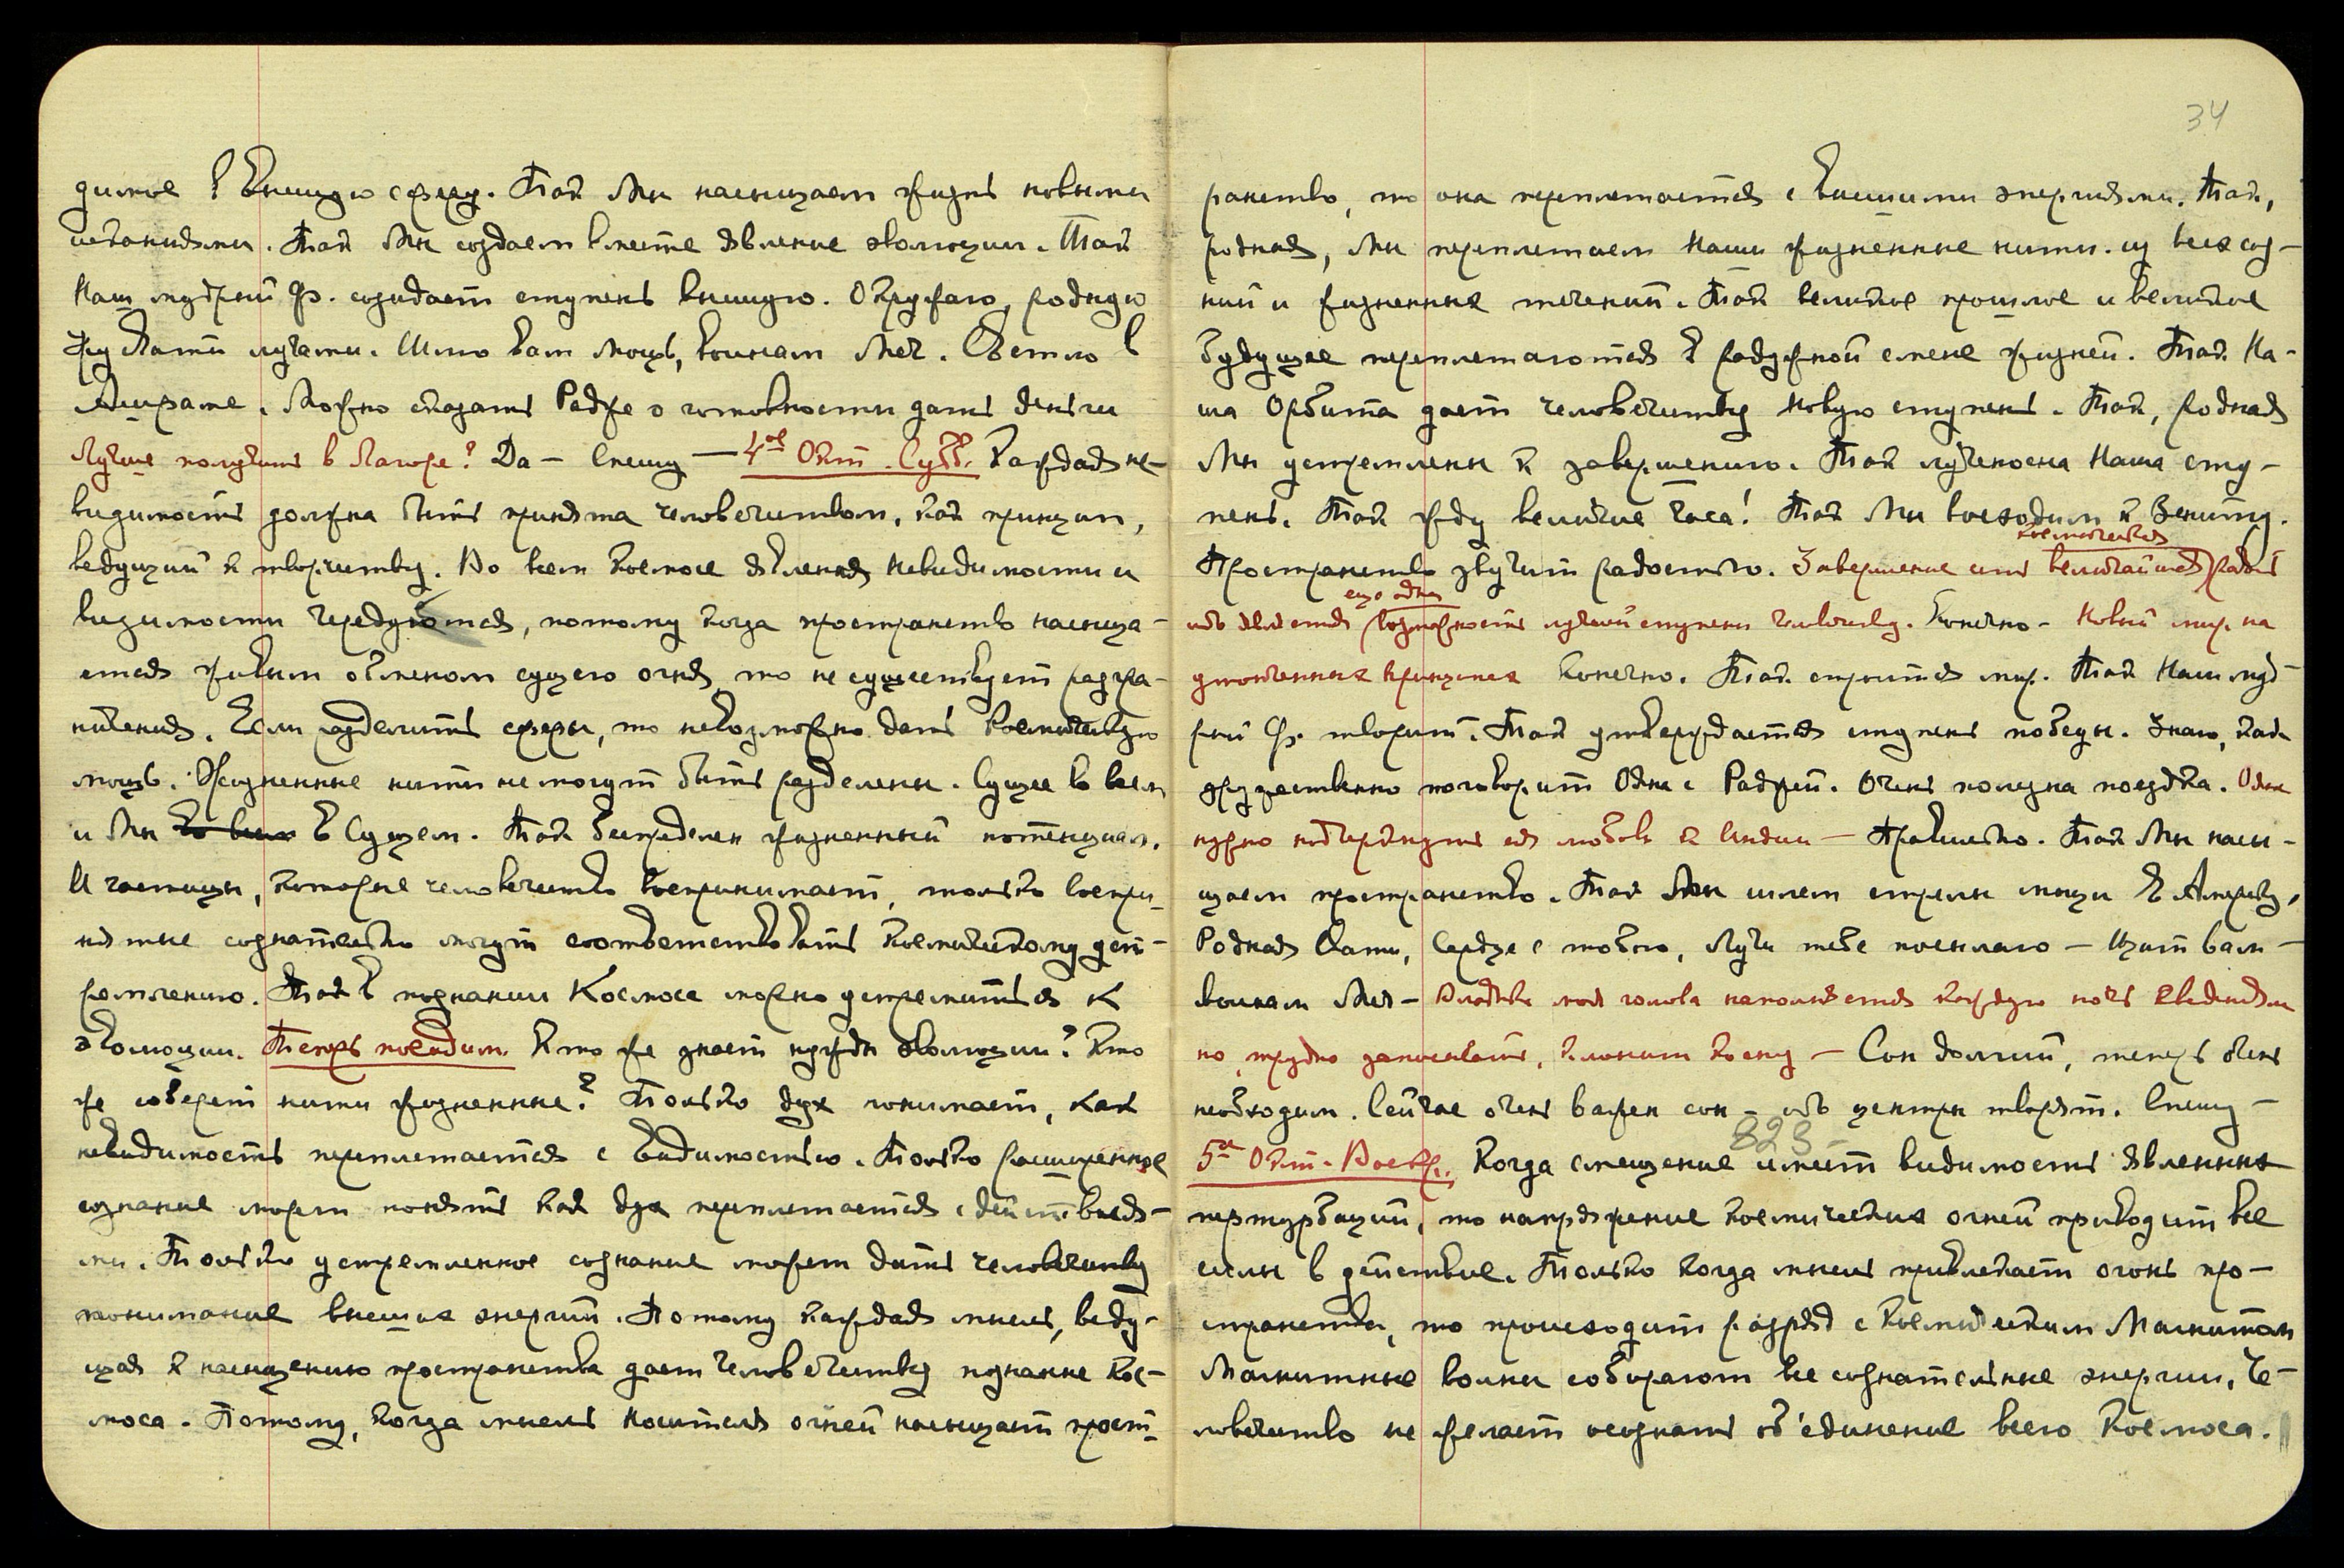 димое в Высшую сферу. Так Мы насыщаем жизнь новыми
исканиями. Так Мы создаем вместе явление эволюции. Так
Наш мудрый Ф. созидает ступень высшую. Окружаю, родную
лучами. Шлю вам мощь, воинам Меч. Светло в
Ашраме. Можно сказать Радже о готовности дать деньги
Лучше получить в Лагоре? Да — Спешу — 4ое Окт. Субб. Каждая не-
видимость должна быть принята человечеством, как принцип,
ведущий к творчеству. Во всем Космосе явления Невидимости и
видимости чередуются, потому когда пространство насыща-
ется живым обменом сущего огня, то не существует разгра-
ничения. Если разделить сферы, то невозможно дать Космическую
мощь. Жизненные нити не могут быть разделены. Сущее во всем
и Мы во всем в Сущем. Так беспределен жизненный потенциал.
И частицы, которые человечество воспринимает, только воспри-
нятые сознательно могут соответствовать Космическому уст-
ремлению. Так в познании Космоса можно устремиться к
эволюции. Теперь поедим. Кто же знает нужды эволюции? Кто
же соберет нити жизненные? Только дух понимает, как
невидимость переплетается с Видимостью. Только расширенное
сознание может понять как дух переплетается с действия-
ми. Только устремленное сознание может дать человечеству
понимание высших энергий. Потому каждая мысль, веду-
щая к насыщению пространства дает человечеству познание Кос-
моса. Потому, когда мысль Носителя огней насыщает прост-
34
ранство, то она переплетается с высшими энергиями. Так,
родная, Мы переплетаем Наши жизненные нити из всех
и жизненных течений. Так великое прошлое и великое
будущее переплетаются в радужной смене жизней. Так На-
ша Орбита дает человечеству новую ступень. Так, родная
Мы устремлены к завершению. Так лученосна Наша сту-
пень. Так жду великие часа! Так Мы восходим к Зениту.
космическая
Пространство звучит радостью. Завершение есть величайшая радость
еще одна
ибо является возможность лучшей ступени человечеству. Конечно — Новый мир на
утонченных принципах Конечно. Так строится мир. Так Наш муд-
рый Ф. творит. Так утверждается ступень победы. Знаю, как
дружественно поговорит Одна с Раджей. Очень полезна поездка. Одна
нужно подчеркнуть ея любовь к Индии — Правильно. Так Мы насы-
щаем пространство. Так Мы шлем стрелы мощи в Америку,
Родная Свати, Сердце с тобою, Лучи тебе посылаю — Щит вам —
воинам Меч — Владыка моя голова наполняется каждую ночь видениями
но, трудно записывать, клонит ко сну — Сон долгий, теперь очень
необходим. Сейчас очень важен сон — ибо центры творят. Спешу —
823
5ое Окт. Воскр. Когда смещение имеет видимость явленных
пертурбаций, то напряжение космических огней приводит все
силы в действие. Только когда мысль привлекает огонь про-
странства, то происходит разряд с Космическим Магнитом
Магнитные волны собирают все сознательные энергии. Че-
ловечество не желает осознать об'единение всего Космоса.